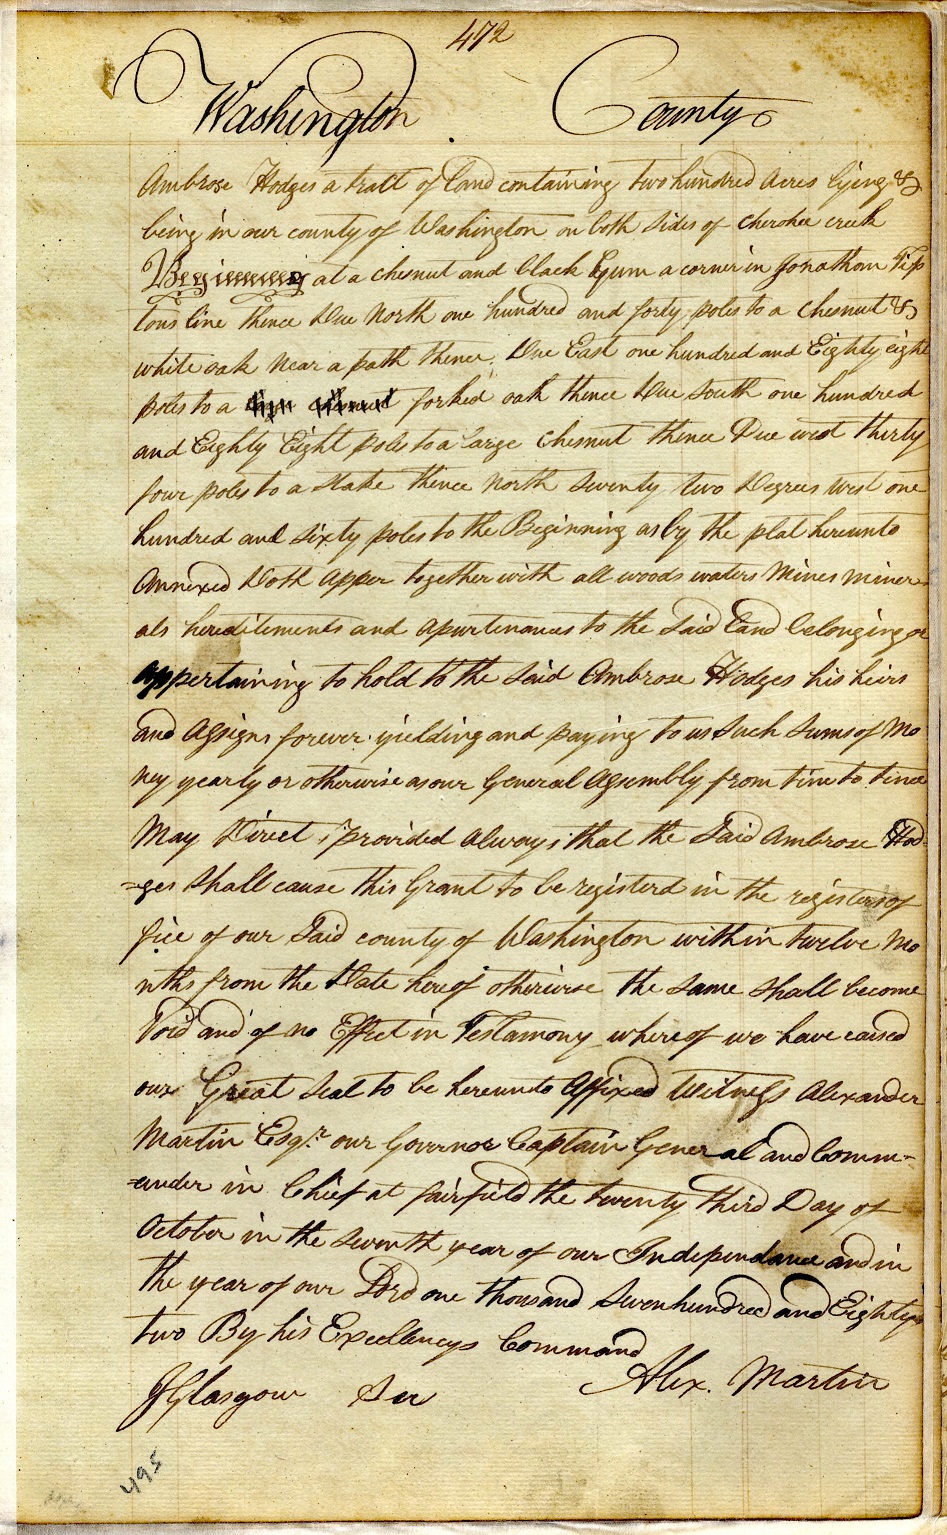 472
Washington County
Ambrose Hodges a tratt of land containing two hundred Acres lying &
being in our county of Washington on both sides of Cherokee creek
Beginning at a chesnut and black Gum a corner in Jonathan Tip
tons line thence Due North one hundred and forty poles to a Chesnut &
white oak near a path thence Due East one hundred and Eighty eight
poles to a forked oak thence Due South one hundred
and Eighty Eight poles to a large Chesnut thence Due west thirty
four poles to a stake thence North Seventy two Degrees west one
hundred and sixty poles to the Beginning as by the plat hereunto
Annexed Doth Apper together with all woods waters Mines miner
als hereditements and Apurtenances to the Said Land belonging or
Appertaining to hold to the said Ambrose Hodges his heirs
and Assigns forever yielding and paying to us Such Sums of Mo
ney yearly or otherwise as our General Assembly from time to time
May Direct, provided Always that the Said Ambrose Hod-
=ges shall cause this Grant to be registerd in the registers of
fice of our Said county of Washington within twelve Mo
nths from the Date hereof otherwise the same shall become
Void and of no Effect in Testamony whereof we have caused
our Great Seal to be hereunto Affixed Witness Alexander
Martin Esqr. our Governor Captain General and Comm-
=ander in Chief at fairfield the twenty third Day of
October in the Seventh year of our Independance and in
the year of our Lord one thousand Seven hundred and Eighty
two By his Excellencys Command
Alex. Martin
J Glasgow Sec
495